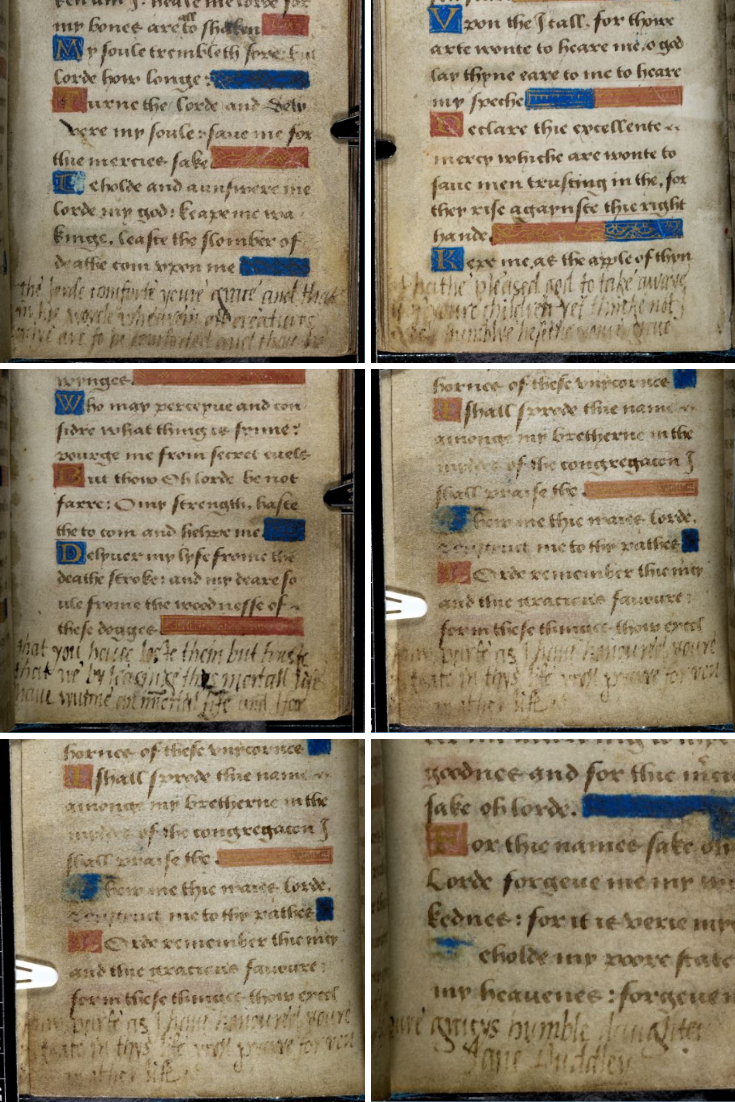 my bones are all to shaken
My soule trembleth sore: but
lorde how longe:
Turne the lorde and dely
vere my soule: save me for
thie mercies sake
Beholde and aunswere me
lorde my god: keape me wa
kinge, leaste the slomber of
deathe com vpon me
the lorde comforte youre grace and that
in his worde wherein all creatures
onlye are to be comforted and thoughe
Vpon the I call, for thowe
arte wonte to heare me, o god
lay thyne eare to me to heare
my speche
Declare thie excellente
mercy whiche are wonte to
save men trusting in the, for
they rise agaynste thie right
hande.
Kepe me, as the apple of thyn
it hathe pleased god to take awaye
of youre children yet thincke not
most humblye beseche youre grace
wynges.
Who may perceyue and con
sidre what thing is synne:
pourge me from secret euels
But thow Oh lorde be not
farre: O my strength, haste
the to com and helpe me.
Delyuer my lyfe frome the
deathe stroke: and my deare so
ule frome the woodnesse of
these dogges
that you have loste them but truste
that we by leavinge this mortall life
have wunne an immortal life and I for
hornes of these vnycornes
I shall sprede thie name
amonge my bretherne in the
myddes of the congregacon I
shall praise the.
Shew me thie waies lorde,
me to thy pathes
LOrde remember thie mer
and thie gracious favoure:
for in these thinges thow excel
my parte as I have honoured youre
grace in thys life wyll praye for you
in a ther life
hornes of these vnycornes
I shall sprede thie name
amonge my bretherne in the
myddes of the congregacon I
shall praise the.
Shew me thie waies lorde,
me to thy pathes
LOrde remember thie mer
and thie gracious favoure:
for in these thinges thow excel
my parte as I have honoured youre
grace in thys life wyll praye for you
in a ther life
goodnes and for thie
sake oh lorde.
For thie names sake oh
Lorde forgeve me my
kednes: for it is verie
eholde my poore state
my heavenes: forgeve
youre gracys humble daughter
Jane Duddley